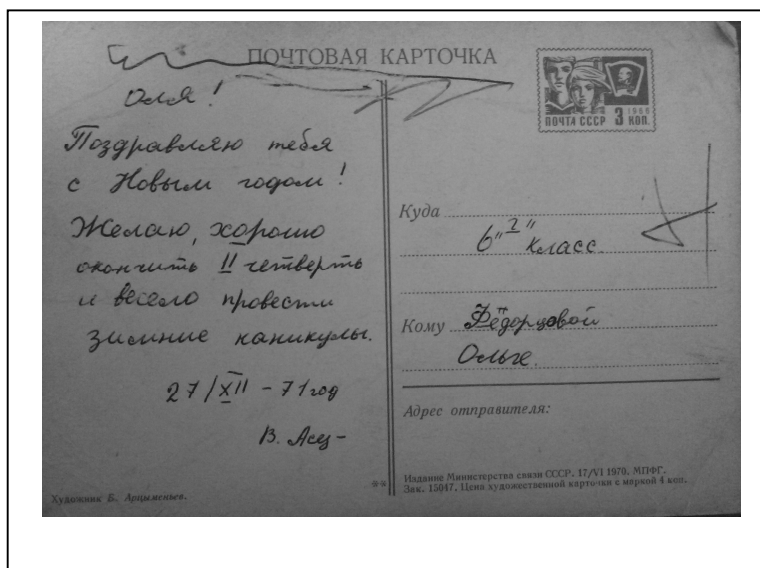 ПОЧТОВАЯ КАРТОЧКА
Оля!
Поздравляю тебя
с Новым годом!
Желаю, хорошо
окончить II четверть
и весело провести
зимние каникулы.
27/XII - 71 год
В.
Художник Б. Арцыменьев.
1966
ПОЧТА СССР 3 КОП.
Куда
6 "г" класс.
Кому Фёдорцовой
Ольге.
Адрес отправителя:
Издание Министерства связи СССР. 17/VI 1970. МПФГ.
Зак. 15047. Цена художественной карточки с маркой 4 коп.